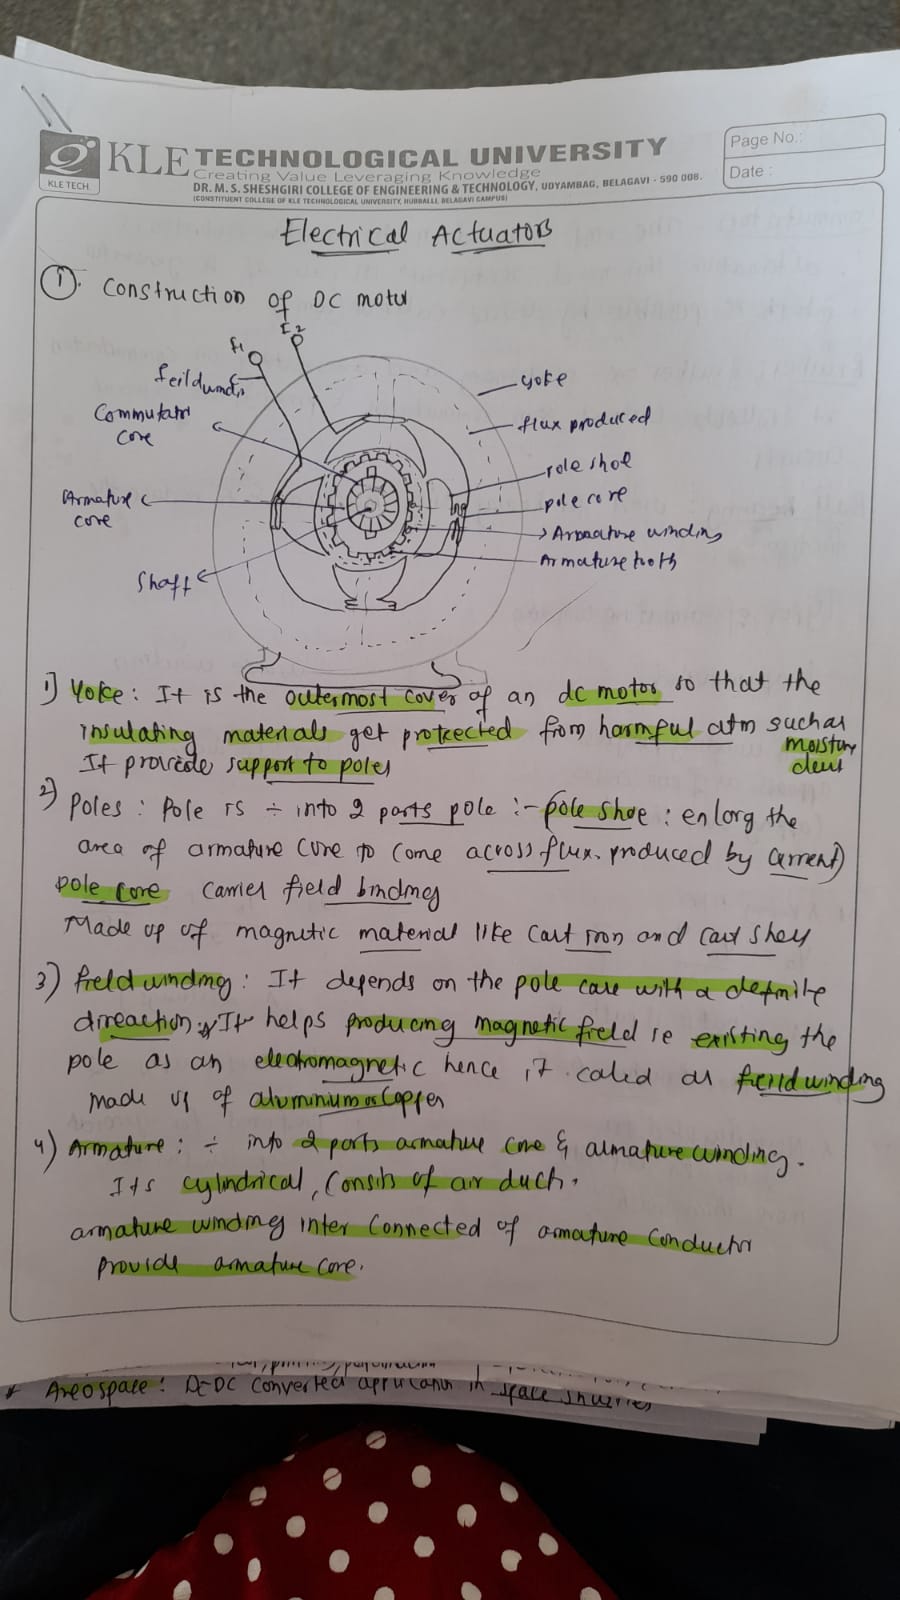 KLE TECHNOLOGICAL UNIVERSITY
Creating Value Leveraging Knowledge
DR. M. S. SHESHGIRI COLLEGE OF ENGINEERING & TECHNOLOGY, UDYAMBAG, BELAGAVI - 590 008.
(CONSTITUENT COLLEGE OF KLE TECHNOLOGICAL UNIVERSITY, HUBBALLI, BELAGAVI CAMPUS)
KLE TECH
Page No.:
Date :
Electrical Actuators
1. Construction of DC motor
F1
F2
feild windi
Commutator
core
Armature
core
Shaft
yoke
flux produced
pole shoe
pole core
Armature winding
Armature tooth
1) Yoke: It is the outermost cover of an dc motor so that the
insulating materials get protected from harmful atm such as
moisture
It provide support to poles
2) Poles: Pole is ÷ into 2 parts pole :- pole shoe : enlarg the
area of armature core to come across flux produced by current)
pole core carries field bindings
Made up of magnetic material like cast iron and cast
3) field winding: It depends on the pole core with a definite
direaction It helps producing magnetic field ie existing the
pole as an electromagnetic hence it called as feild winding
made up of aluminium or Copper
4) Armature: ÷ into 2 parts armature core & armature winding.
Its cylindrical, consits of air duch.
armature winding inter connected of armature conductor
provide armature core.
Areospace: DC-DC converted in space